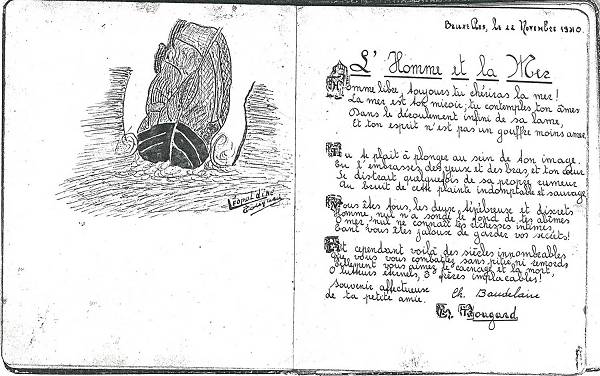 Léopoldine
Bruxelles, le 22 Novembre 1940.
L'Homme et la Mer
Homme libre, toujours tu chériras la mer!
La mer est ton miroir; tu contemples ton âmes
Dans le déroulement infini de sa lame,
Et ton esprit n'est pas un gouffre moins amer.
Tu te plait à plonger au sein de ton image.
Tu l'embrasses des yeux et des bras, et ton cœur
Se distrait quelquefois de sa propre rumeur
Au bruit de cette plainte indomptable et sauvage
Vous êtes tous les deux, ténébreux et discrets
Homme, nul n'a sondé le fond de tes abîmes
O mer, nul ne connaît tes richesses intimes,
Tant vous êtes jaloux de garder vos secrets!
Et cependant voilà des siècles innombrables
Que vous vous combattez sans pitié, ni remords
Tellement vous aimez le carnage et la mort,
O lutteurs éternels, O frères implacables!
Ch. Baudelaire
Souvenir affectueux
de ta petite amie.
Bougard